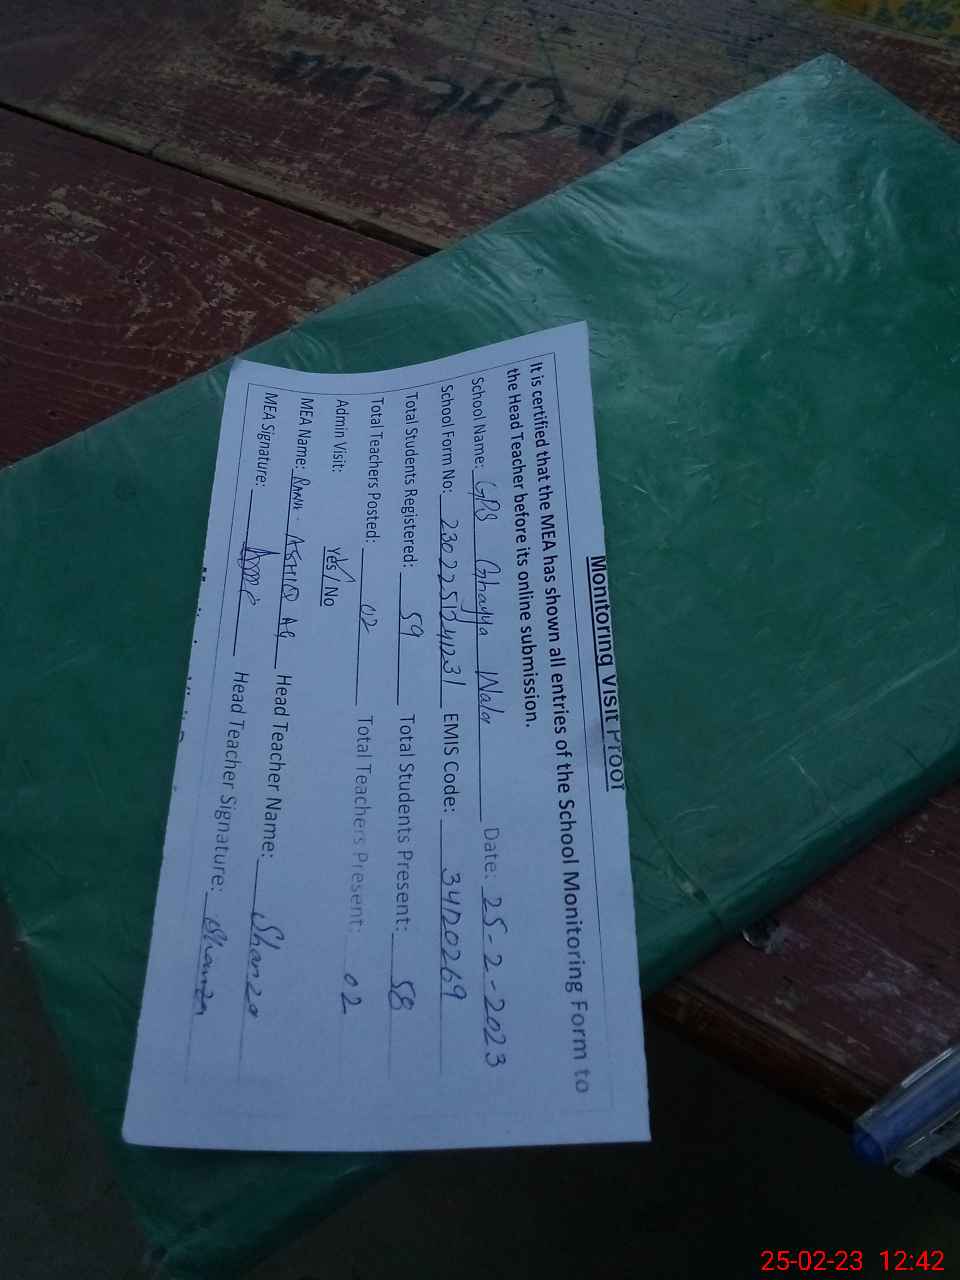 Monitoring Visit Proof
It is certified that the MEA has shown all entries of the School Monitoring Form to
the Head Teacher before its online submission.
School Name: GPS Ghayya Wala Date: 25-2-2023
School Form No: EMIS Code: 34120269
Total Students Registered: 59 Total Students Present: 58
Total Teachers Posted: 02 Total Teachers Present: 02
Admin Visit: Yes / No
MEA Name: RANA Head Teacher Name: Shanza
MEA Signature: Head Teacher Signature: Shanza
25-02-23 12:42